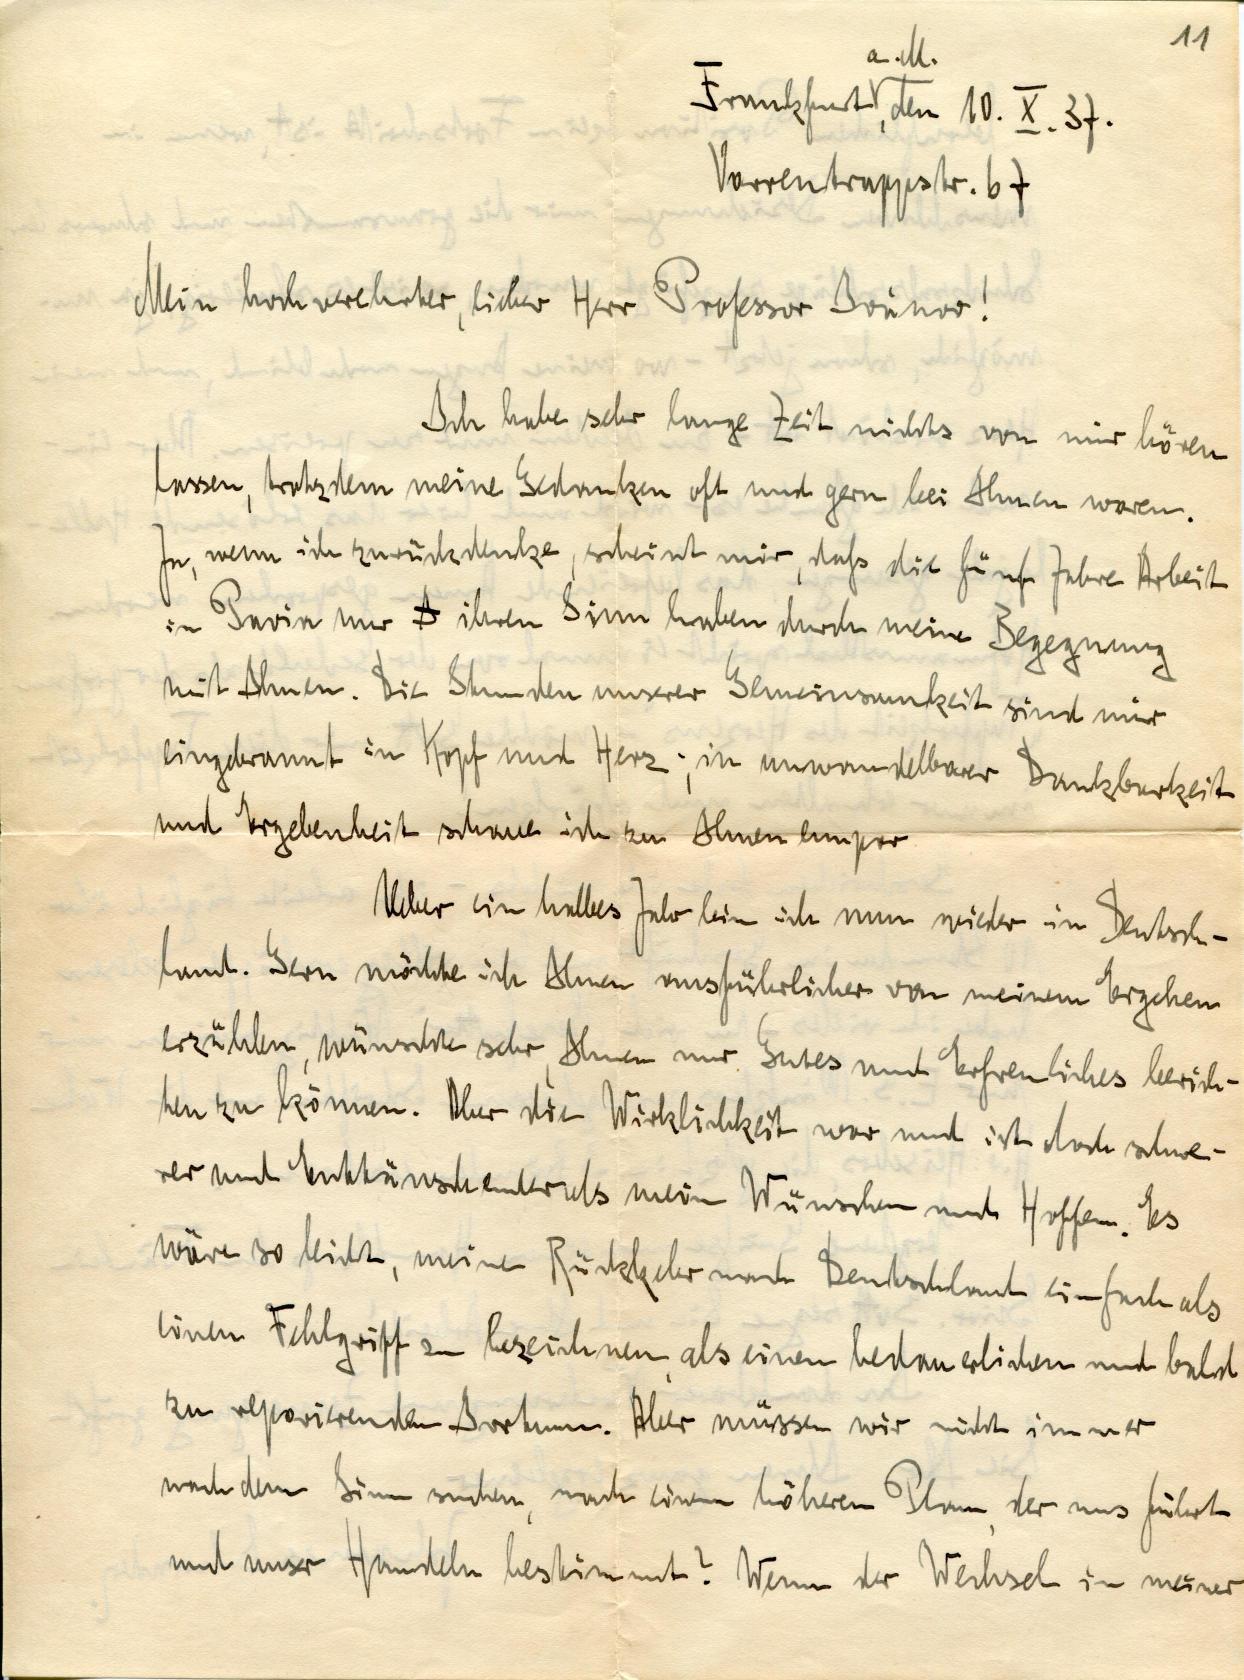 11
a. M.
Frankfurt, den 10. X. 37.
Varrentrappstr. 67
Mein hochverehrter, lieber Herr Professor Brünor!
Ich habe sehr lange Zeit nichts von mir hören
lassen, trotzdem meine Gedanken oft und gern bei Ihnen waren.
Ja, wenn ich zurückdenke, scheint mir, daſs die fünf Jahre Arbeit
in Pavia nur ihren Sinn haben durch meine Begegnung
mit Ihnen. Die Stunden unserer Gemeinsamkeit sind mir
eingebrannt in Kopf und Herz; in unwandelbarer Dankbarkeit
und Ergebenheit schaue ich zu Ihnen empor
Ueber ein halbes Jahr bin ich nun wieder in Deutsch-
land. Gern möchte ich Ihnen ausführlicher von meinem Ergehen
erzählen, wünschte sehr, Ihnen nur Gutes und Erfreuliches berich-
ten zu können. Aber die Wirklichkeit war und ist doch schwe-
rer und Enttäuschender als mein Wünschen und Hoffen. Es
wäre so leicht, meine Rückkehr nach Deutschland einfach als
einen Fehlgriff zu bezeichnen, als einen bedauerlichen und bald
zu reparierenden Irrtum. Aber müssen wir nicht immer
nach dem Sinn suchen, nach einem höheren Plan, der uns führt
und unser Handeln bestimmt? Wenn der Wechsel in meiner